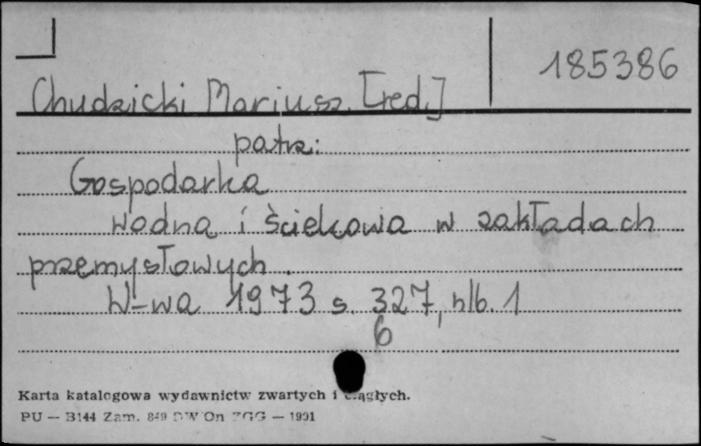 185386
Chudzicki Mariusz. [red.]
patrz:
Gospodarka
wodna i ściekowa w zakładach
przemysłowych.
W-wa 1973 s. 327, nlb. 1
6
Karta katalogowa wydawnictw zwartych i ciągłych.
PU — B144 Zam. 849 DW On ZGG — 1991